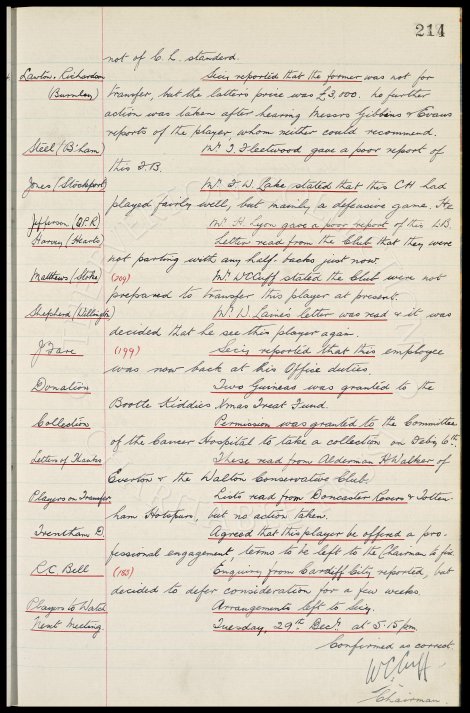 214
not of C. L. standard.
Lawton. Richardson Secy reported that the former was not for
(Burnley) transfer, but the latters price was £3,000. No further
action was taken after hearing Messrs Gibbins & Evans
reports of the player, whom neither could recommend.
Steel (B'ham) Mr J. Fleetwood gave a poor report of
this F.B.
Jones (Stockport) Mr F W Lake stated that this CH had
played fairly well, but mainly a defensive game. He
Jefferson (Q.P.R) Mr H. Lyon gave a poor report of this L.B.
Harvey (Hearts) Letter read from the Club that they were
not parting with any half-backs just now.
Matthews (Stoke) (209) Mr W C Cuff stated the Club were not
prepared to transfer this player at present.
Shepherd (Wellington) Mr W Laine's letter was read & it was
decided that he see this player again.
J Fare (199) Secy reported that this employee
was now back at his Office duties.
Donation Two Guineas was granted to the
Bootle Kiddies Xmas Treat Fund.
Collection Permission was granted to the Committee
of the Cancer Hospital to take a collection on Feby 6th.
Letters of Thanks These read from Alderman H Walker of
Everton & the Walton Conservative Club.
Players on Transfer Lists read from Doncaster Rovers & Totten-
ham Hotspurs, but no action taken.
Trentham D. Agreed that this player be offered a pro-
fessional engagement, terms to be left to the Chairman to fix.
R.C Bell (188) Enquiry from Cardiff City reported, but
decided to defer consideration for a few weeks
Players to Watch Arrangements left to Secy.
Next Meeting Tuesday, 29th Decr at 5.15 pm.
Confirmed as correct.
W C Cuff
Chairman.